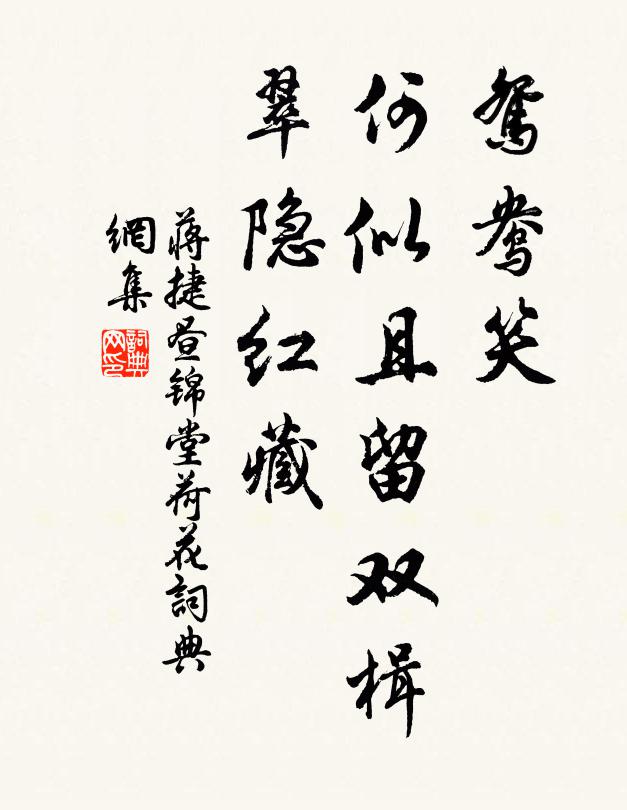 鸳鸯笑
何似且留双楫
翠隐红藏
蒋捷昼锦堂荷花詞典
網集
詞典
网印